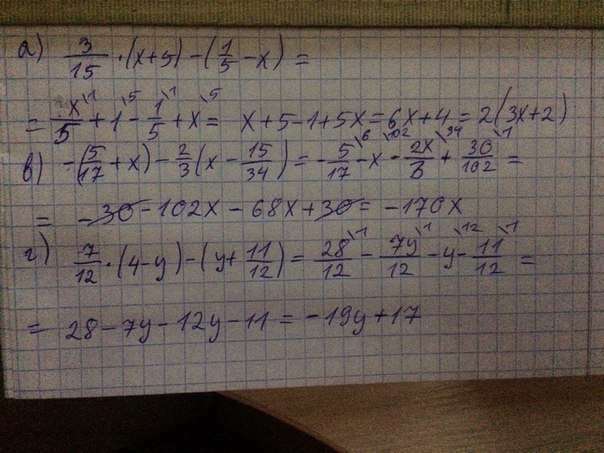 а) 3/15 · (x+5) - (1/5 - x) =
= x/5 \1 + 1 \5 - 1/5 \1 + x \5 = x+5-1+5x=6x+4=2(3x+2)
в) -(5/17 + x) - 2/3 (x - 15/34) = - 5/17 \6 - x \102 - 2x/3 \34 + 30/102 \1 =
= -30-102x-68x+30= -170x
г) 7/12 · (4-y) - (y + 11/12) = 28/12 \1 - 7y/12 \1 - y \12 - 11/12 \1 =
= 28-7y-12y-11= -19y+17